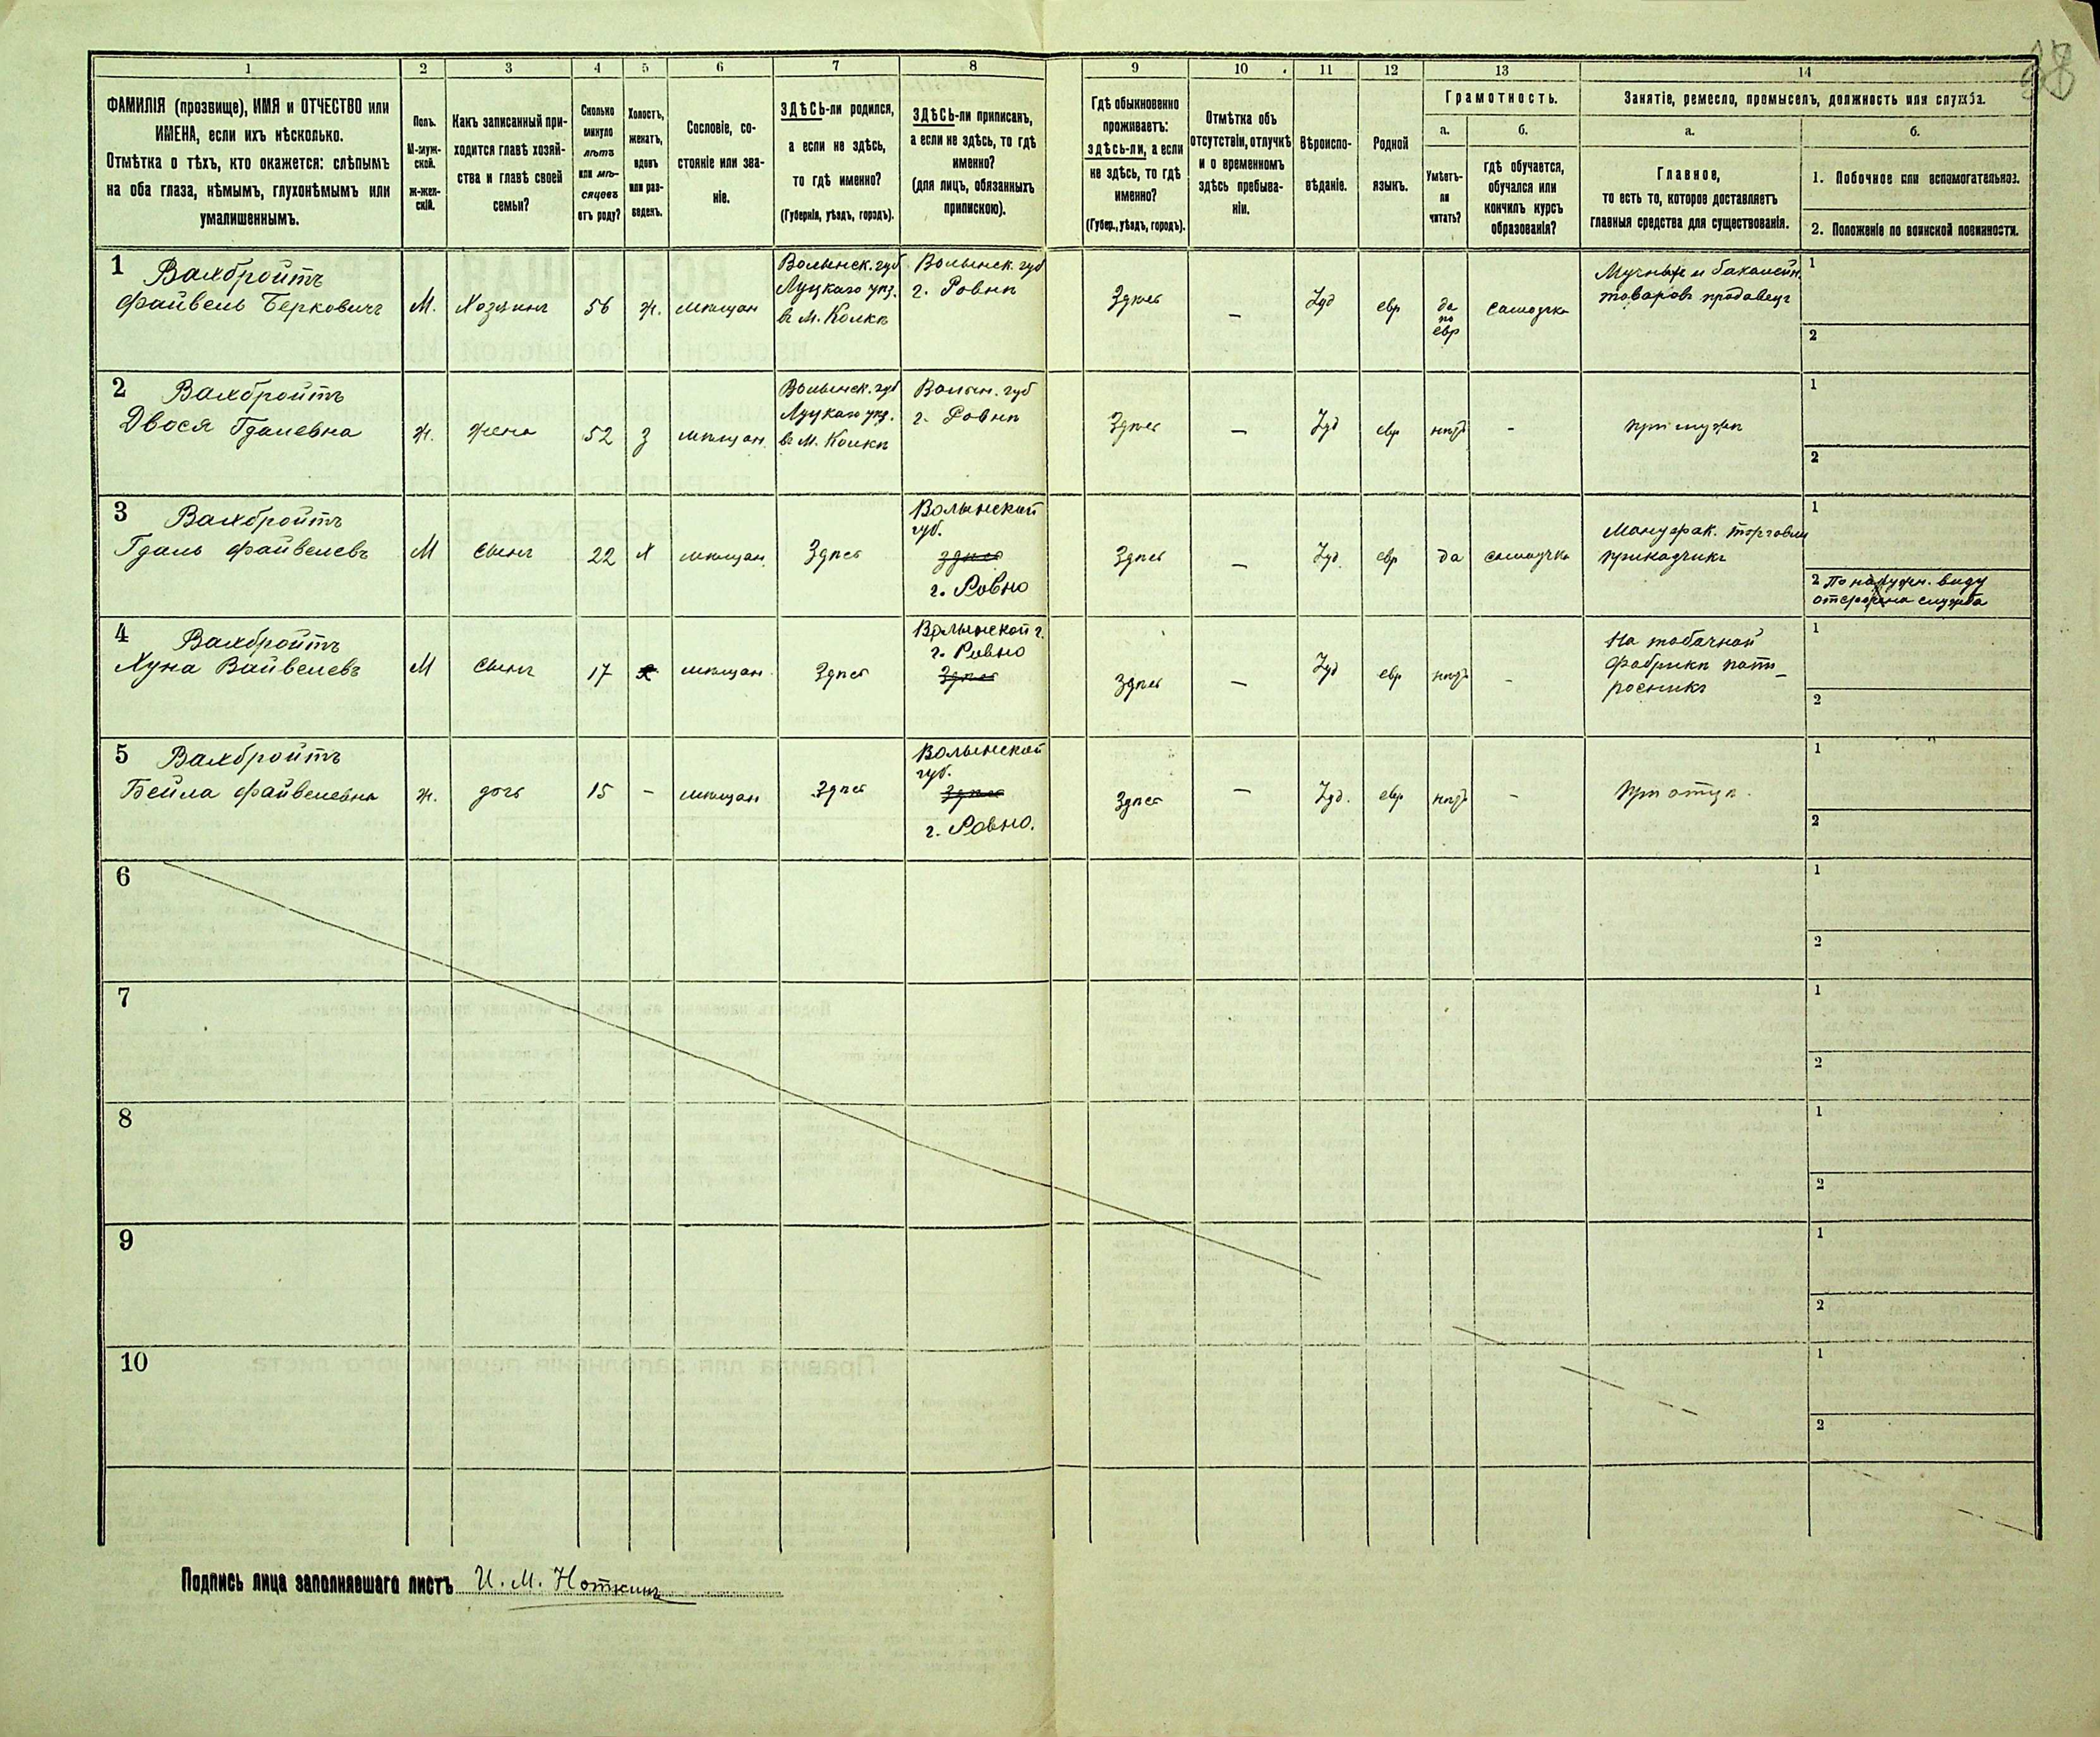 28
1 2 3 4 5 6 7 8 9 10 11 12 13 14
ФАМИЛІЯ (прозвище), ИМЯ и ОТЧЕСТВО или
ИМЕНА, если ихъ нѣсколько.
Отмѣтка о тѣхъ, кто окажется: слѣпымъ
на оба глаза, нѣмымъ, глухонѣмымъ или
умалишеннымъ.
Полъ.
М-муж-
ской.
ж-жен-
скій.
Какъ записанный при-
ходится главѣ хозяй-
ства и главѣ своей
семьи?
Сколько
минуло
лѣтъ
или мѣ-
сяцевъ
отъ роду?
Холостъ,
женатъ,
вдовъ
или раз-
веденъ.
Сословіе, со-
стояніе или зва-
ніе.
ЗДѢСЬ-ли родился,
а если не здѣсь,
то гдѣ именно?
(Губернія, уѣздъ, городъ).
ЗДѢСЬ-ли приписанъ,
а если не здѣсь, то гдѣ
именно?
(для лицъ, обязанныхъ
припискою).
Гдѣ обыкновенно
проживаетъ:
здѣсь-ли, а если
не здѣсь, то гдѣ
именно?
(Губер., уѣздъ, городъ).
Отмѣтка объ
отсутствіи, отлучкѣ
и о временномъ
здѣсь пребыва-
ніи.
Вѣроиспо-
вѣданіе.
Родной
языкъ.
Грамотность.
а.
Умѣетъ-
ли
читать?
б.
гдѣ обучается,
обучался или
кончилъ курсъ
образованія?
Занятіе, ремесло, промыселъ, должность или служба.
а.
Главное,
то есть то, которое доставляетъ
главныя средства для существованія.
б.
1. Побочное или вспомогательное.
2. Положеніе по воинской повинности.
1 Вахбройтъ
Файвель Берковичъ
М.
Хозяинъ
56
ж.
мѣщан
Волынск. губ
Луцкаго уѣз.
въ м. Колки
Волынск. губ
г. Ровнѣ
Здѣсь
—
Іуд
евр
да
по
евр
самоучка
Мучныхъ и бакалейн.
товаровъ продавецъ
1
2
2 Вахбройтъ
Двося Гдалевна
ж.
жена
52
з
мѣщан.
Волынск. губ
Луцкаго уѣз.
въ м. Колкѣ
Волын. губ
г. Ровнѣ
Здѣсь
—
Іуд
евр
нѣтъ
-
при мужѣ
1
2
3 Вахбройтъ
Гдаль Файвелевъ
М
сынъ
22
х
мѣщан.
Здѣсь
Волынской
губ.
здѣсь
г. Ровно
Здѣсь
—
Іуд.
евр
да
самоучка
Мануфак. торговли
прикащикъ
1
2 По наружн. виду
отсрочена служба
4 Вахбройтъ
Хуна Вайвелевъ
М
сынъ
17
х
мѣщан.
Здѣсь
Волынской г.
г. Ровно
Здѣсь
Здѣсь
—
Іуд
евр
нѣтъ
-
На табачной
фабрикѣ пап_
росникъ
1
2
5 Вахбройтъ
Бейла Файвелевна
ж.
дочь
15
-
мѣщан
Здѣсь
Волынской
губ.
Здѣсь
г. Ровно.
Здѣсь
—
Іуд.
евр
нѣтъ
-
при отцѣ.
1
2
6
1
2
7
1
2
8
1
2
9
1
2
10
1
2
Подпись лица заполнявшаго листъ И. М. Ноткинъ